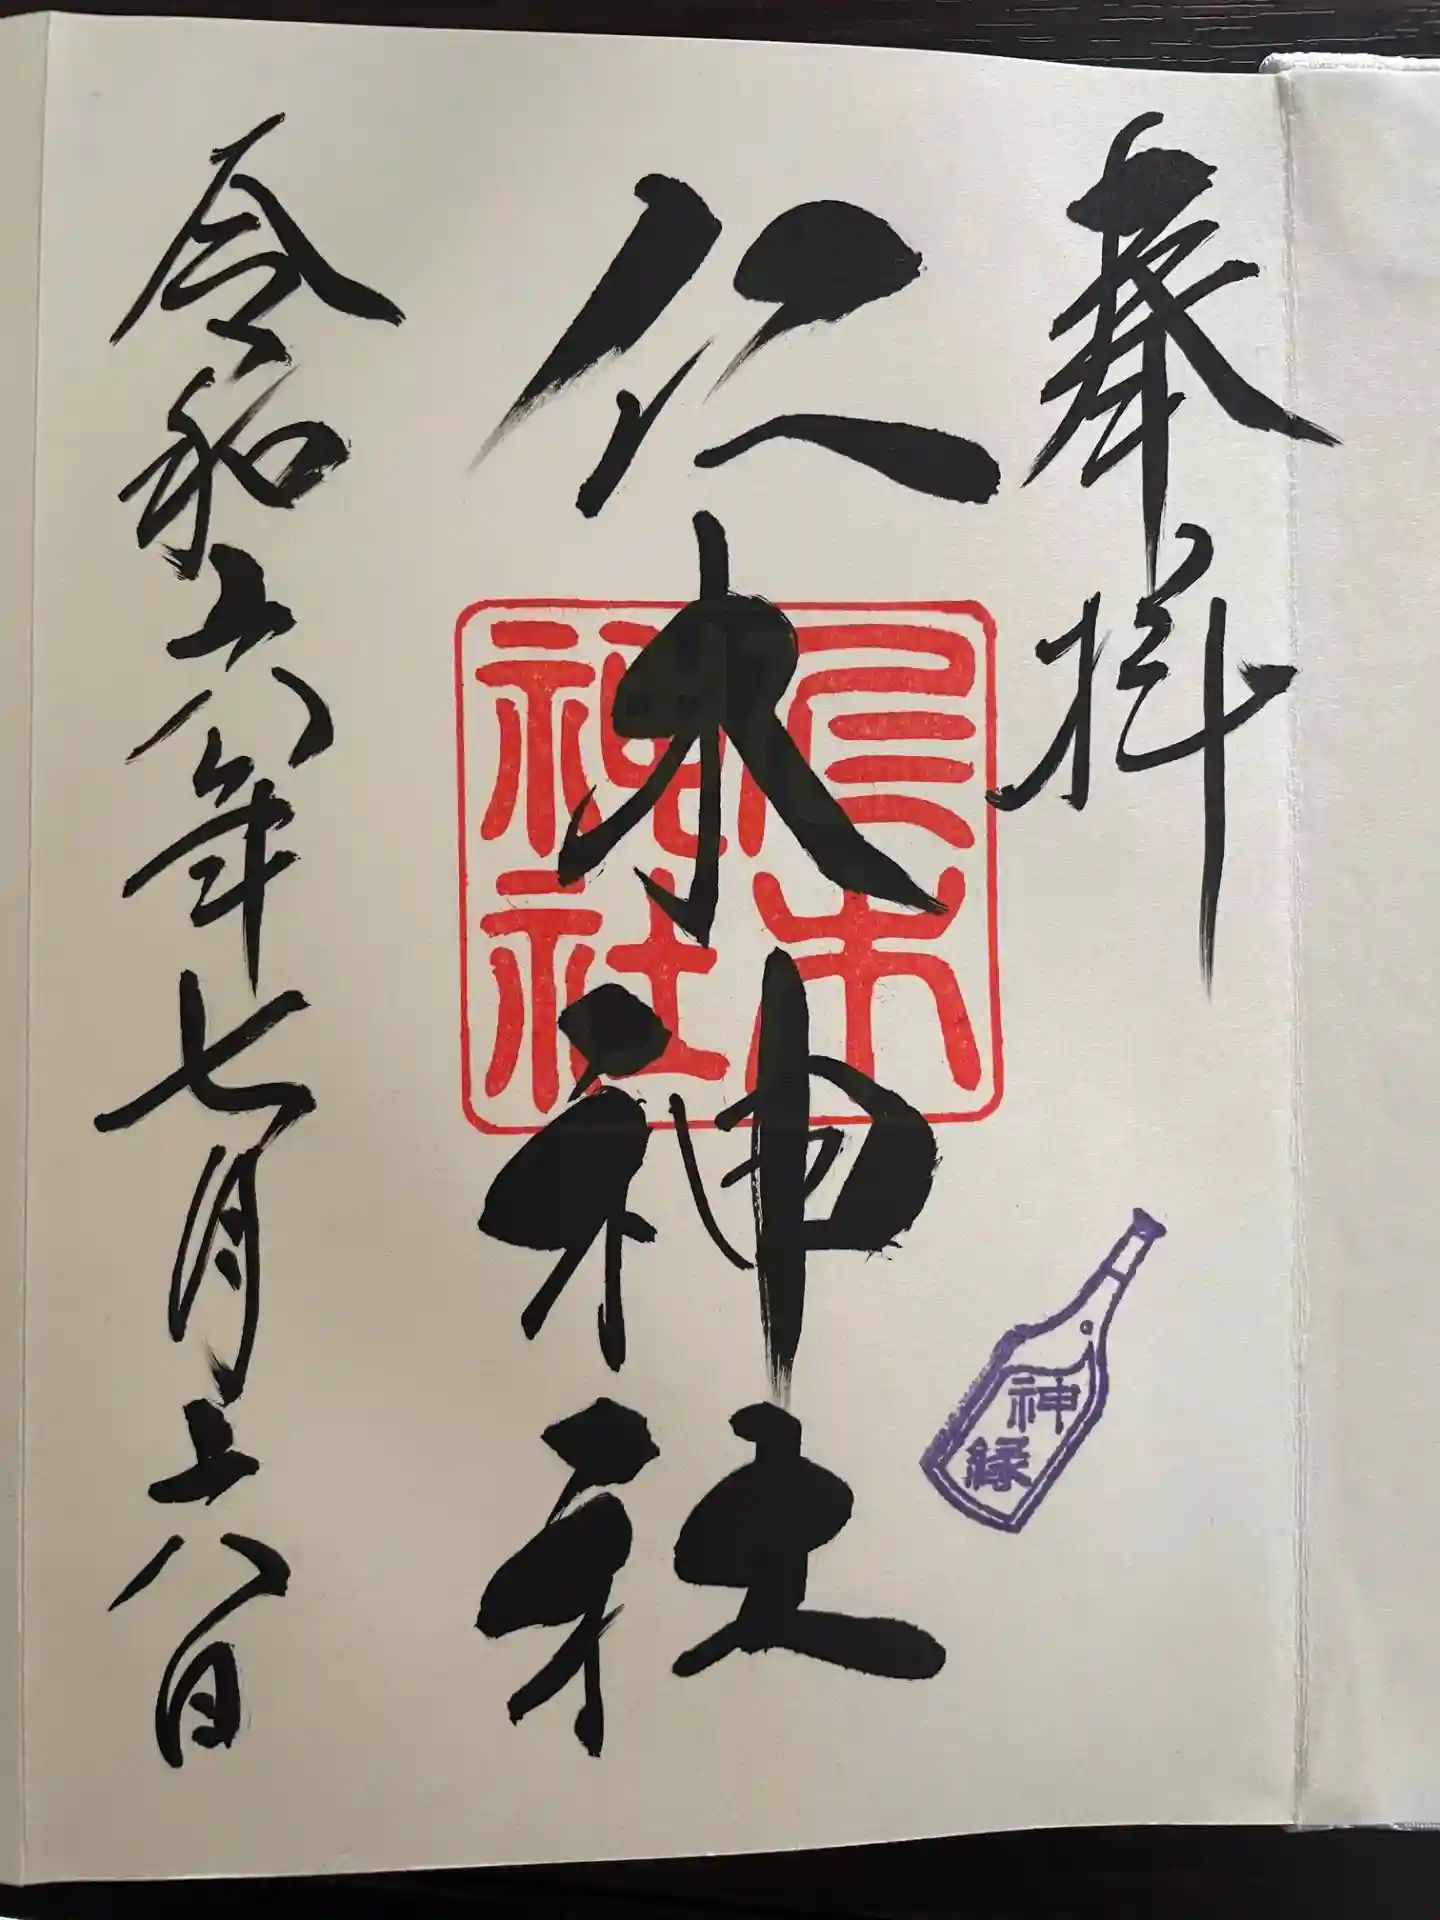 奉拝
仁木神社
仁木
神社
令和六年七月六日
神
縁